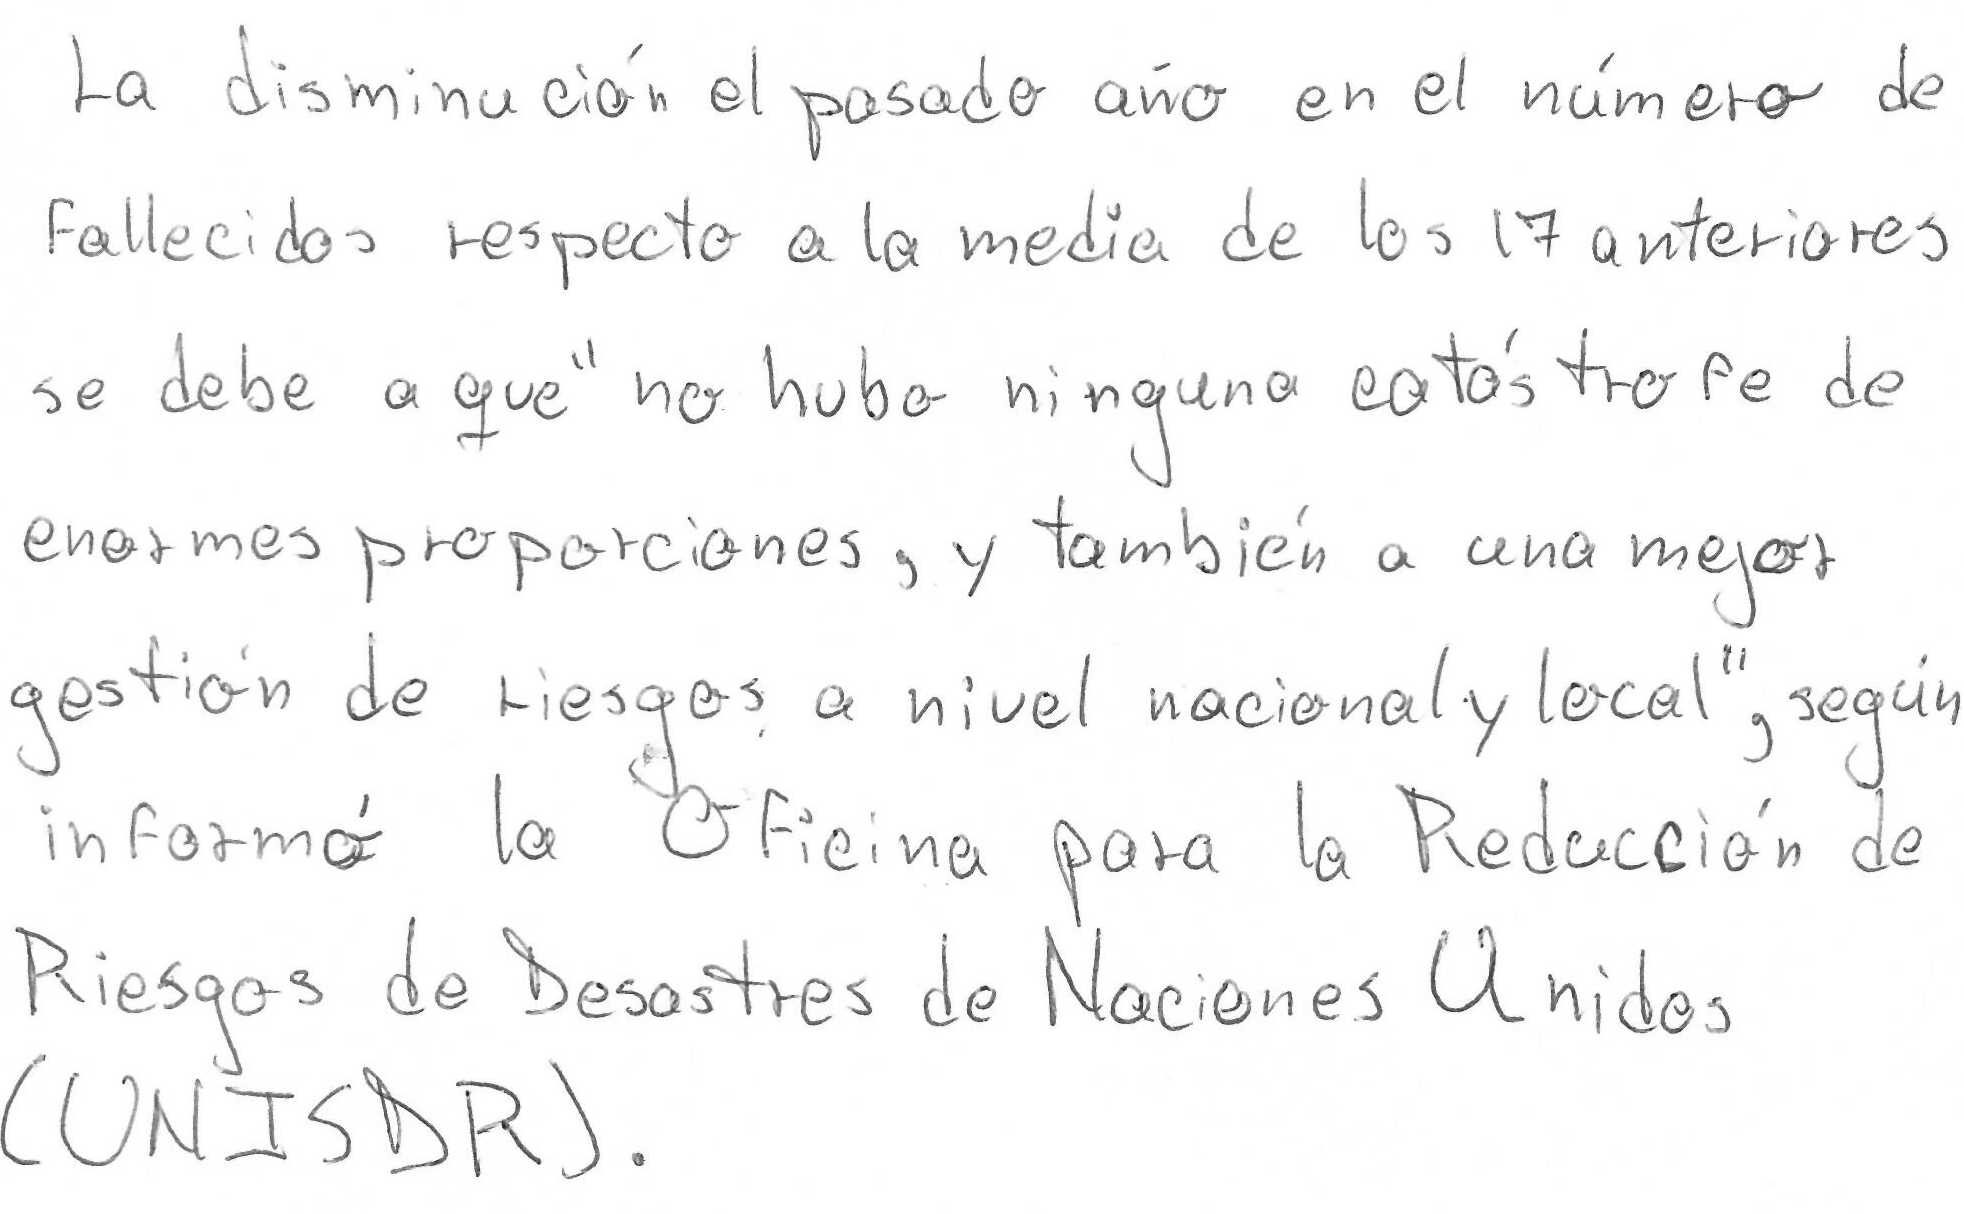 La disminución el pasado año en el número de
fallecidos respecto a la media de los 17 anteriores
se debe a que "no hubo ninguna catástrofe de
enormes proporciones, y también a una mejor
gestión de riesgos a nivel nacional y local", según
informó la Oficina para la Reducción de
Riesgos de Desastres de Naciones Unidos
(UNISDR).